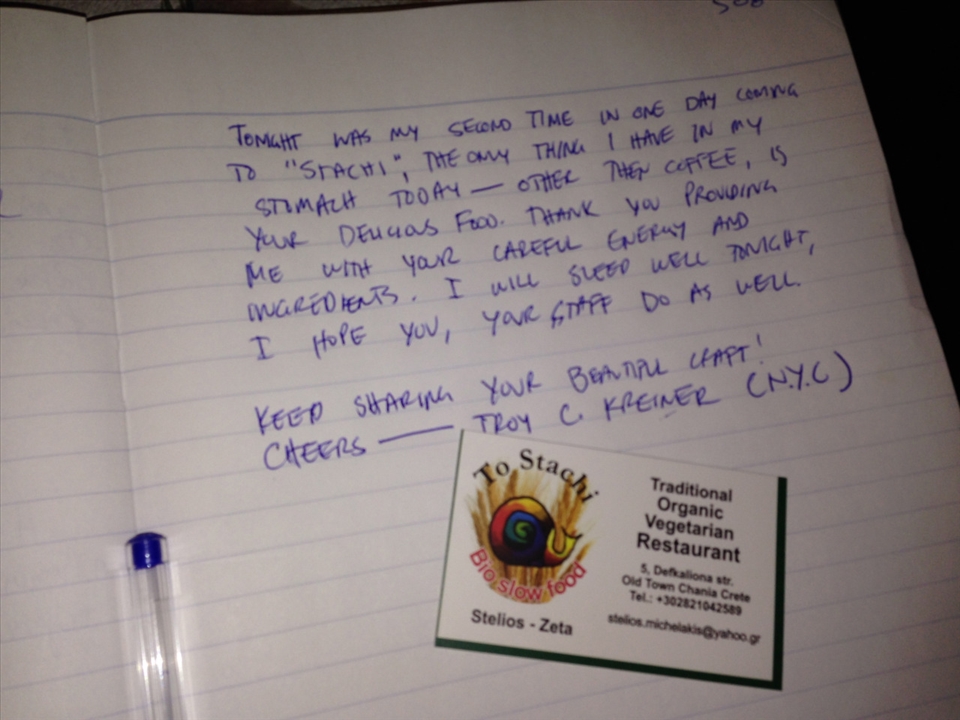 TONIGHT WAS MY SECOND TIME IN ONE DAY COMING
TO "STACHI", THE ONLY THING I HAVE IN MY
STOMACH TODAY — OTHER THEN COFFEE, IS
YOUR DELICIOUS FOOD. THANK YOU PROVIDING
ME WITH YOUR CAREFUL ENERGY AND
INGREDIENTS. I WILL SLEEP WELL TONIGHT,
I HOPE YOU, YOUR STAFF DO AS WELL.
KEEP SHARING YOUR BEAUTIFUL CRAFT!
CHEERS — TROY C. KREINER (N.Y.C)
To Stachi
Bio slow food
Stelios - Zeta
Traditional
Organic
Vegetarian
Restaurant
5, Defkaliona str.
Old Town Chania Crete
Tel.: +302821042589
stelios.michelakis@yahoo.gr